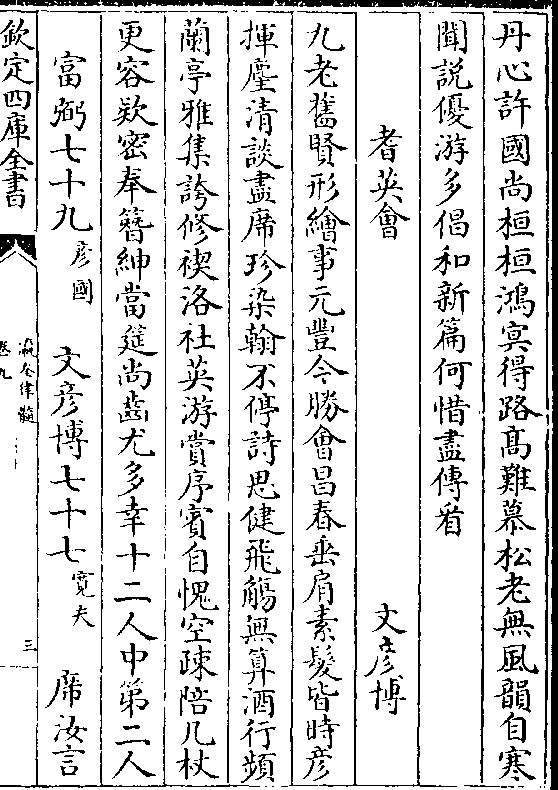 丹心許國尚桓桓鴻㝠得路髙難慕松老無風韻自寒
聞說優游多倡和新篇何惜盡傳㸔
耆英會　文彦博
九老舊賢形繪事元豐今勝會昌春垂肩素髮皆時彦
揮麈清談盡席珍染翰不停詩思健飛觴無算酒行頻
蘭亭雅集誇修禊洛社英游賞序賔自愧空疎陪几杖
更容欵密奉簪紳當筵尚齒尤多幸十二人中第二人
富弼七十九彦國　文彦博七十七寛夫　席汝言
欽定四庫全書
瀛奎律髓
卷九
三